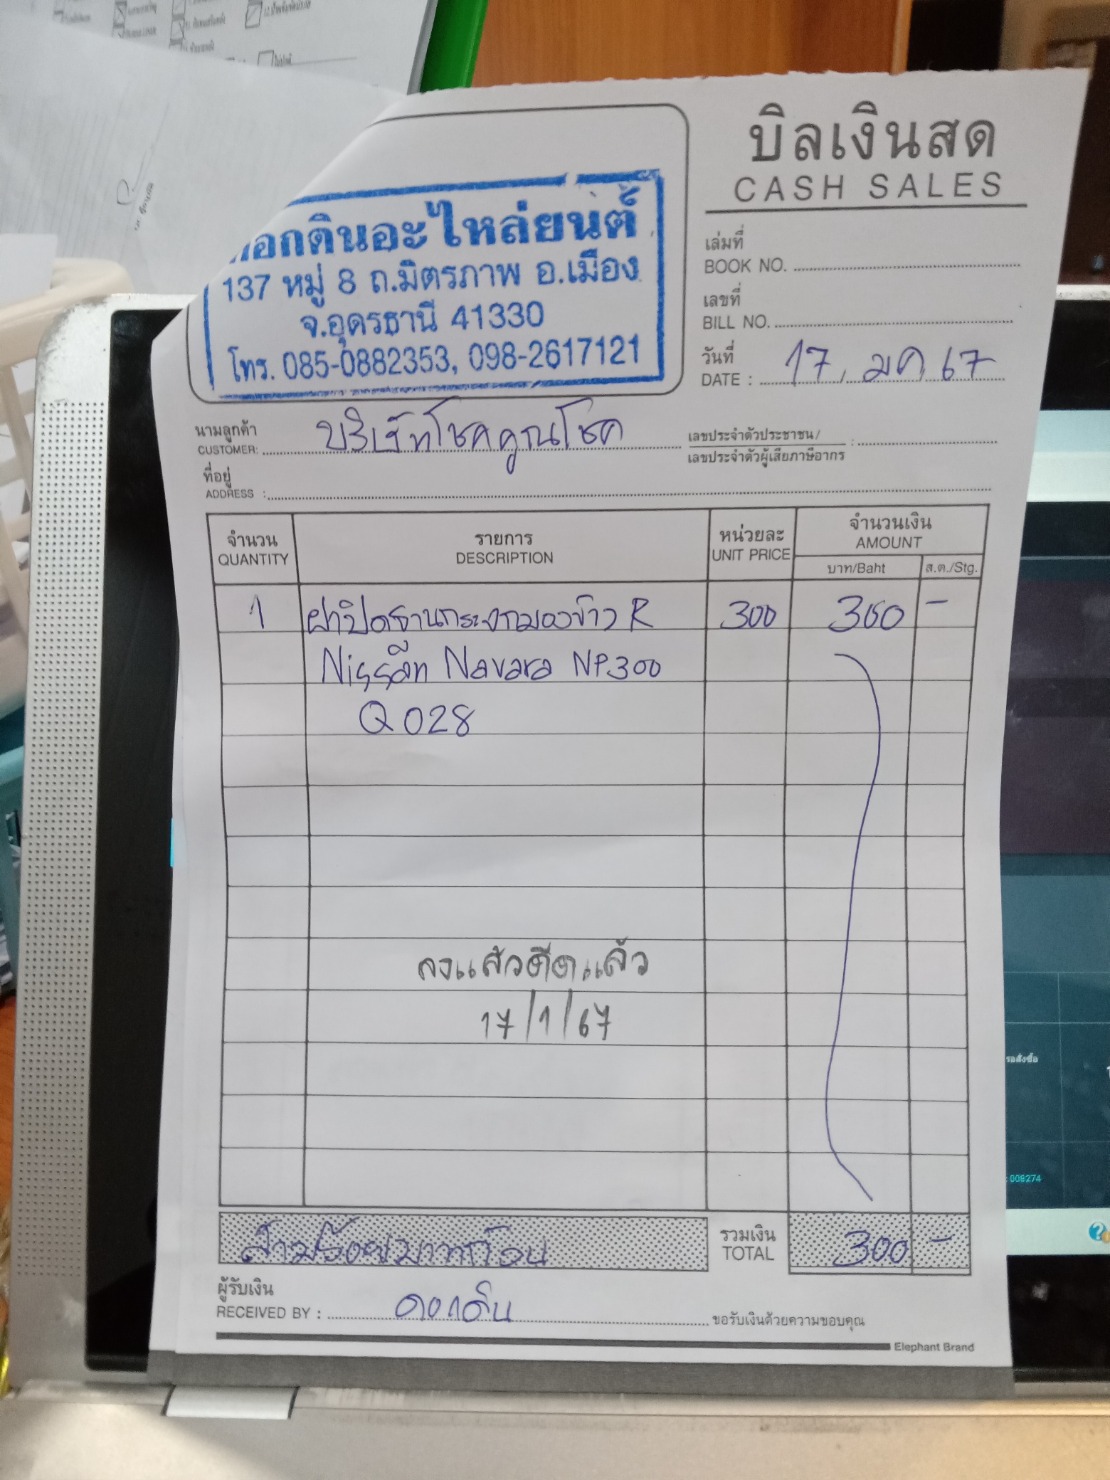 บิลเงินสด
CASH SALES
อกดินอะไหล่ยนต์
137 หมู่ 8 ถ.มิตรภาพ อ.เมือง
จ.อุดรธานี 41330
โทร. 085-0882353, 098-2617121
เล่มที่
BOOK NO.
เลขที่
BILL NO.
วันที่
DATE : 17, มค 67
นามลูกค้า
CUSTOMER: บริษัทโชคคูณโชค
เลขประจำตัวประชาชน/
เลขประจำตัวผู้เสียภาษีอากร :
ที่อยู่
ADDRESS :
จำนวน รายการ หน่วยละ จำนวนเงิน
QUANTITY DESCRIPTION UNIT PRICE AMOUNT
บาท/Baht ส.ต./Stg.
1 ฝาปิดฐานกระจกมองข้าง R 300 300 -
Nissan Navara NP300
Q028
ลงแล้วตีดแล้ว
17/1/67
สามร้อยบาทถ้วน รวมเงิน 300 -
TOTAL
ผู้รับเงิน
RECEIVED BY : ดอกดิน ขอรับเงินด้วยความขอบคุณ
Elephant Brand
รอสั่งซื้อ
008274